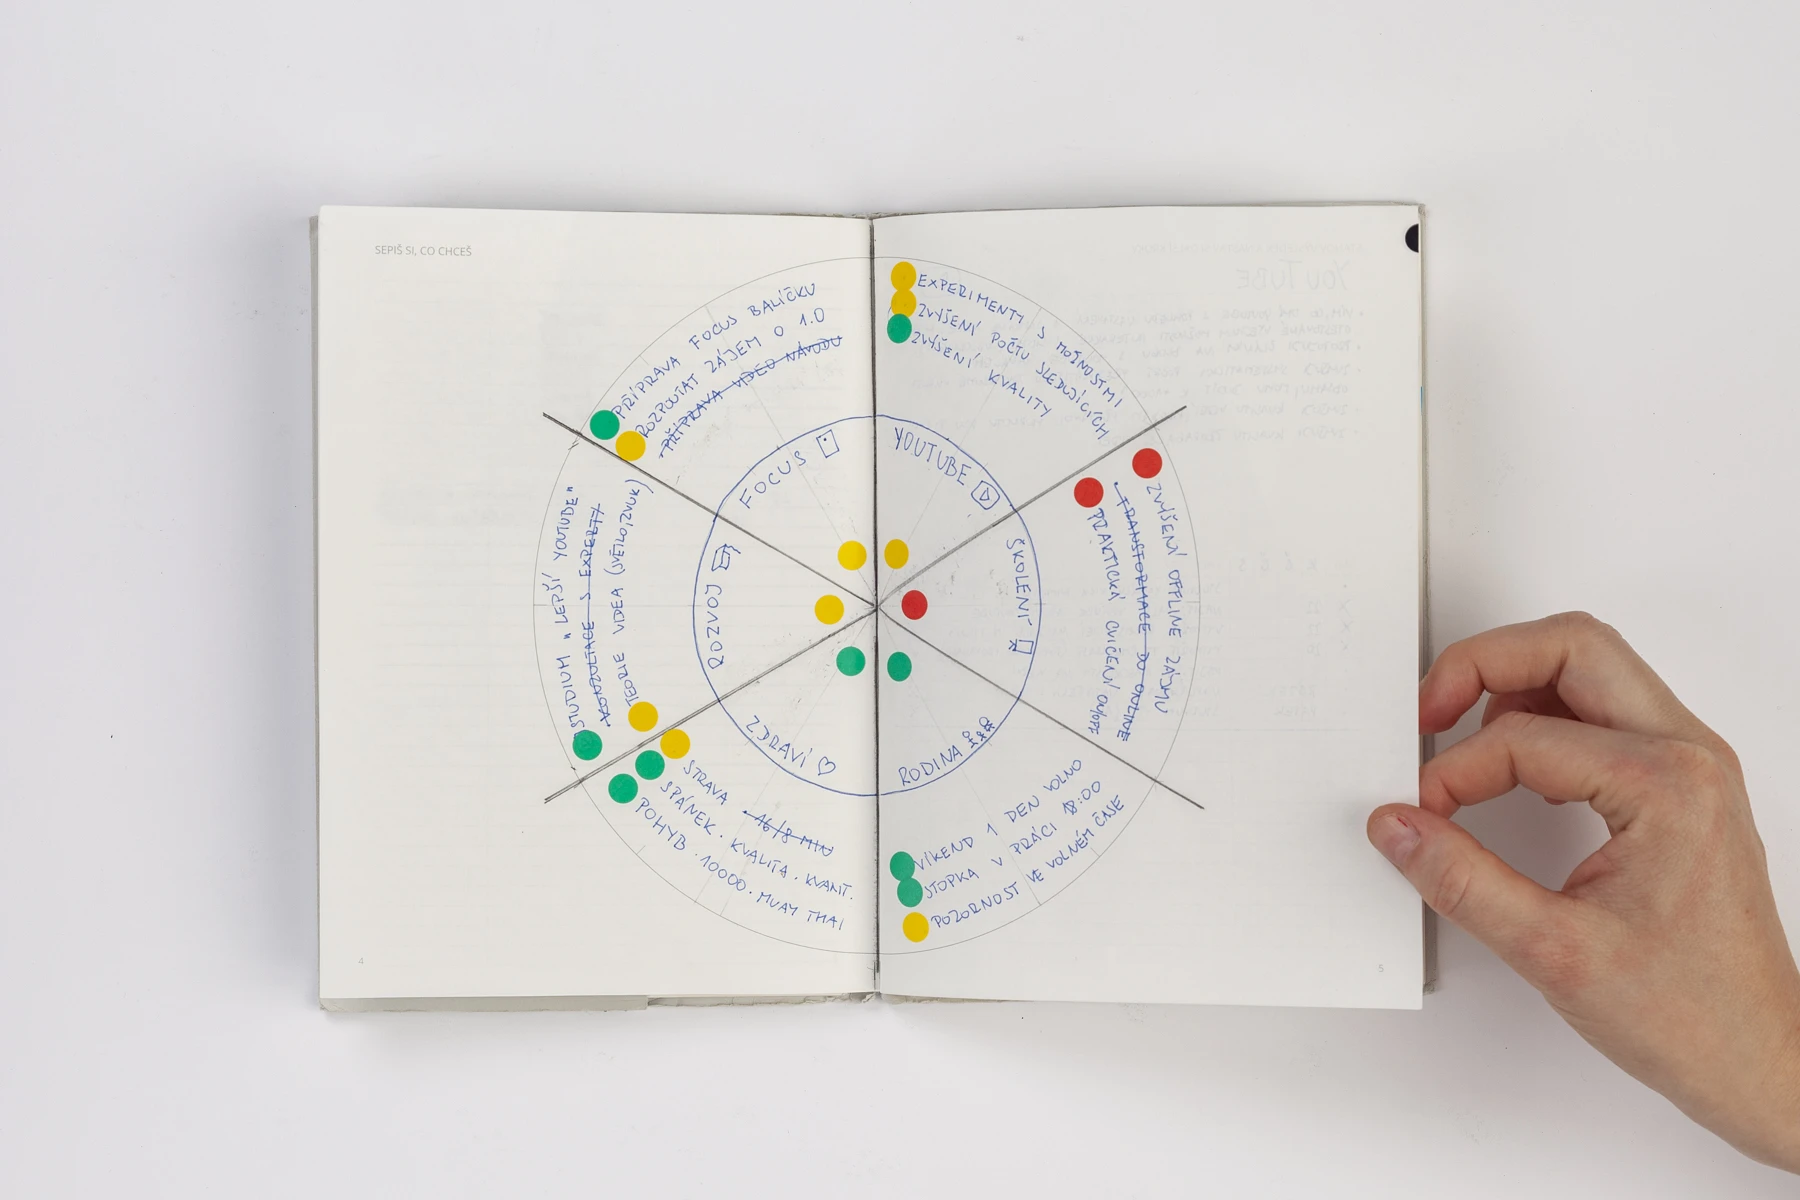 SEPIŠ SI, CO CHCEŠ
PŘÍPRAVA FOCUS BALÍČKU
ROZPOUTAT ZÁJEM O 1.0
PŘÍPRAVA VIDEO NÁVODU
FOCUS
EXPERIMENTY S MOŽNOSTMI
ZVÝŠENÍ POČTU SLEDUJÍCÍCH
ZVÝŠENÍ KVALITY
YOUTUBE
ZVÝŠENÍ OFFLINE ZÁJMU
TRANSFORMACE DO ONLINE
PRAKTICKÁ CVIČENÍ ON/OFF
ŠKOLENÍ
RODINA
VÍKEND 1 DEN VOLNO
STOPKA V PRÁCI 18:00
POZORNOST VE VOLNÉM ČASE
ZDRAVÍ
STRAVA · 16/8 MIN
SPÁNEK · KVALITA · KVANT.
POHYB · 10000 · MUAY THAI
ROZVOJ
STUDIUM "LEPŠÍ YOUTUBE"
KONZULTACE S EXPERTY
TEORIE VIDEA (SVĚTLO, ZVUK)
YOUTUBE
4
5